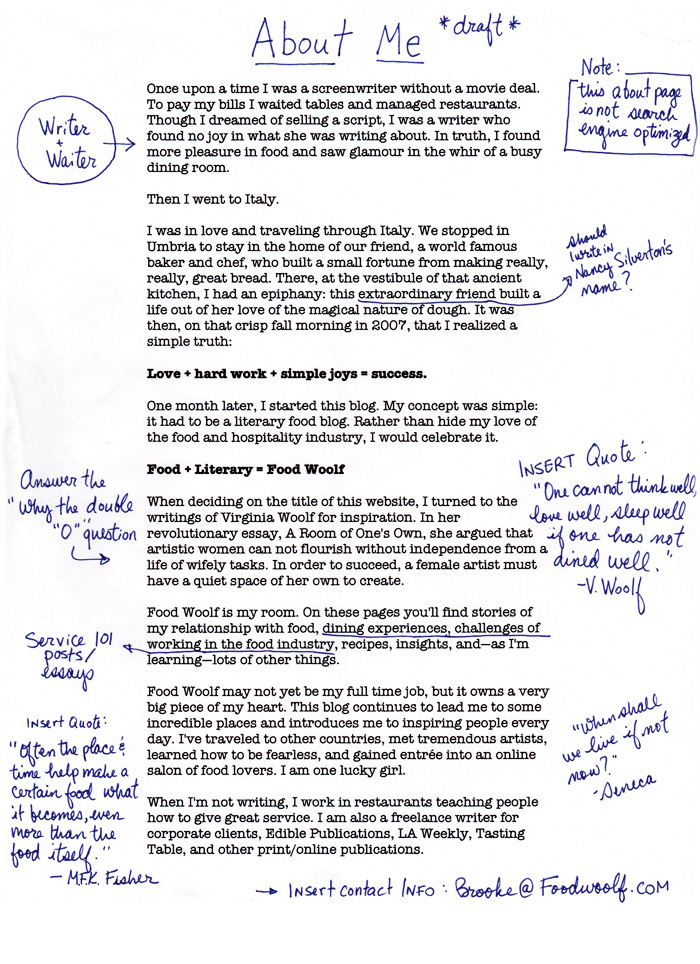 About Me
*draft*
Note:
this about page
is not search
engine optimized
Writer
+
Waiter
Once upon a time I was a screenwriter without a movie deal.
To pay my bills I waited tables and managed restaurants.
Though I dreamed of selling a script, I was a writer who
found no joy in what she was writing about. In truth, I found
more pleasure in food and saw glamour in the whir of a busy
dining room.
Then I went to Italy.
I was in love and traveling through Italy. We stopped in
Umbria to stay in the home of our friend, a world famous
baker and chef, who built a small fortune from making really,
really, great bread. There, at the vestibule of that ancient
kitchen, I had an epiphany: this extraordinary friend built a
life out of her love of the magical nature of dough. It was
then, on that crisp fall morning in 2007, that I realized a
simple truth:
should
I write in
Nancy Silverton's
name?
Love + hard work + simple joys = success.
One month later, I started this blog. My concept was simple:
it had to be a literary food blog. Rather than hide my love of
the food and hospitality industry, I would celebrate it.
Food + Literary = Food Woolf
Answer the
"why the double
"O" question
When deciding on the title of this website, I turned to the
writings of Virginia Woolf for inspiration. In her
revolutionary essay, A Room of One's Own, she argued that
artistic women can not flourish without independence from a
life of wifely tasks. In order to succeed, a female artist must
have a quiet space of her own to create.
INSERT Quote:
"One cannot think well,
love well, sleep well
if one has not
dined well."
-V. Woolf
Food Woolf is my room. On these pages you'll find stories of
my relationship with food, dining experiences, challenges of
working in the food industry, recipes, insights, and—as I'm
learning—lots of other things.
Service 101
posts/
essays
Food Woolf may not yet be my full time job, but it owns a very
big piece of my heart. This blog continues to lead me to some
incredible places and introduces me to inspiring people every
day. I've traveled to other countries, met tremendous artists,
learned how to be fearless, and gained entrée into an online
salon of food lovers. I am one lucky girl.
Insert Quote:
"Often the place &
time help make a
certain food what
it becomes, even
more than the
food itself."
- M.F.K. Fisher
"When shall
we live if not
now?"
-Seneca
When I'm not writing, I work in restaurants teaching people
how to give great service. I am also a freelance writer for
corporate clients, Edible Publications, LA Weekly, Tasting
Table, and other print/online publications.
→ Insert contact Info: Brooke@Foodwoolf.com